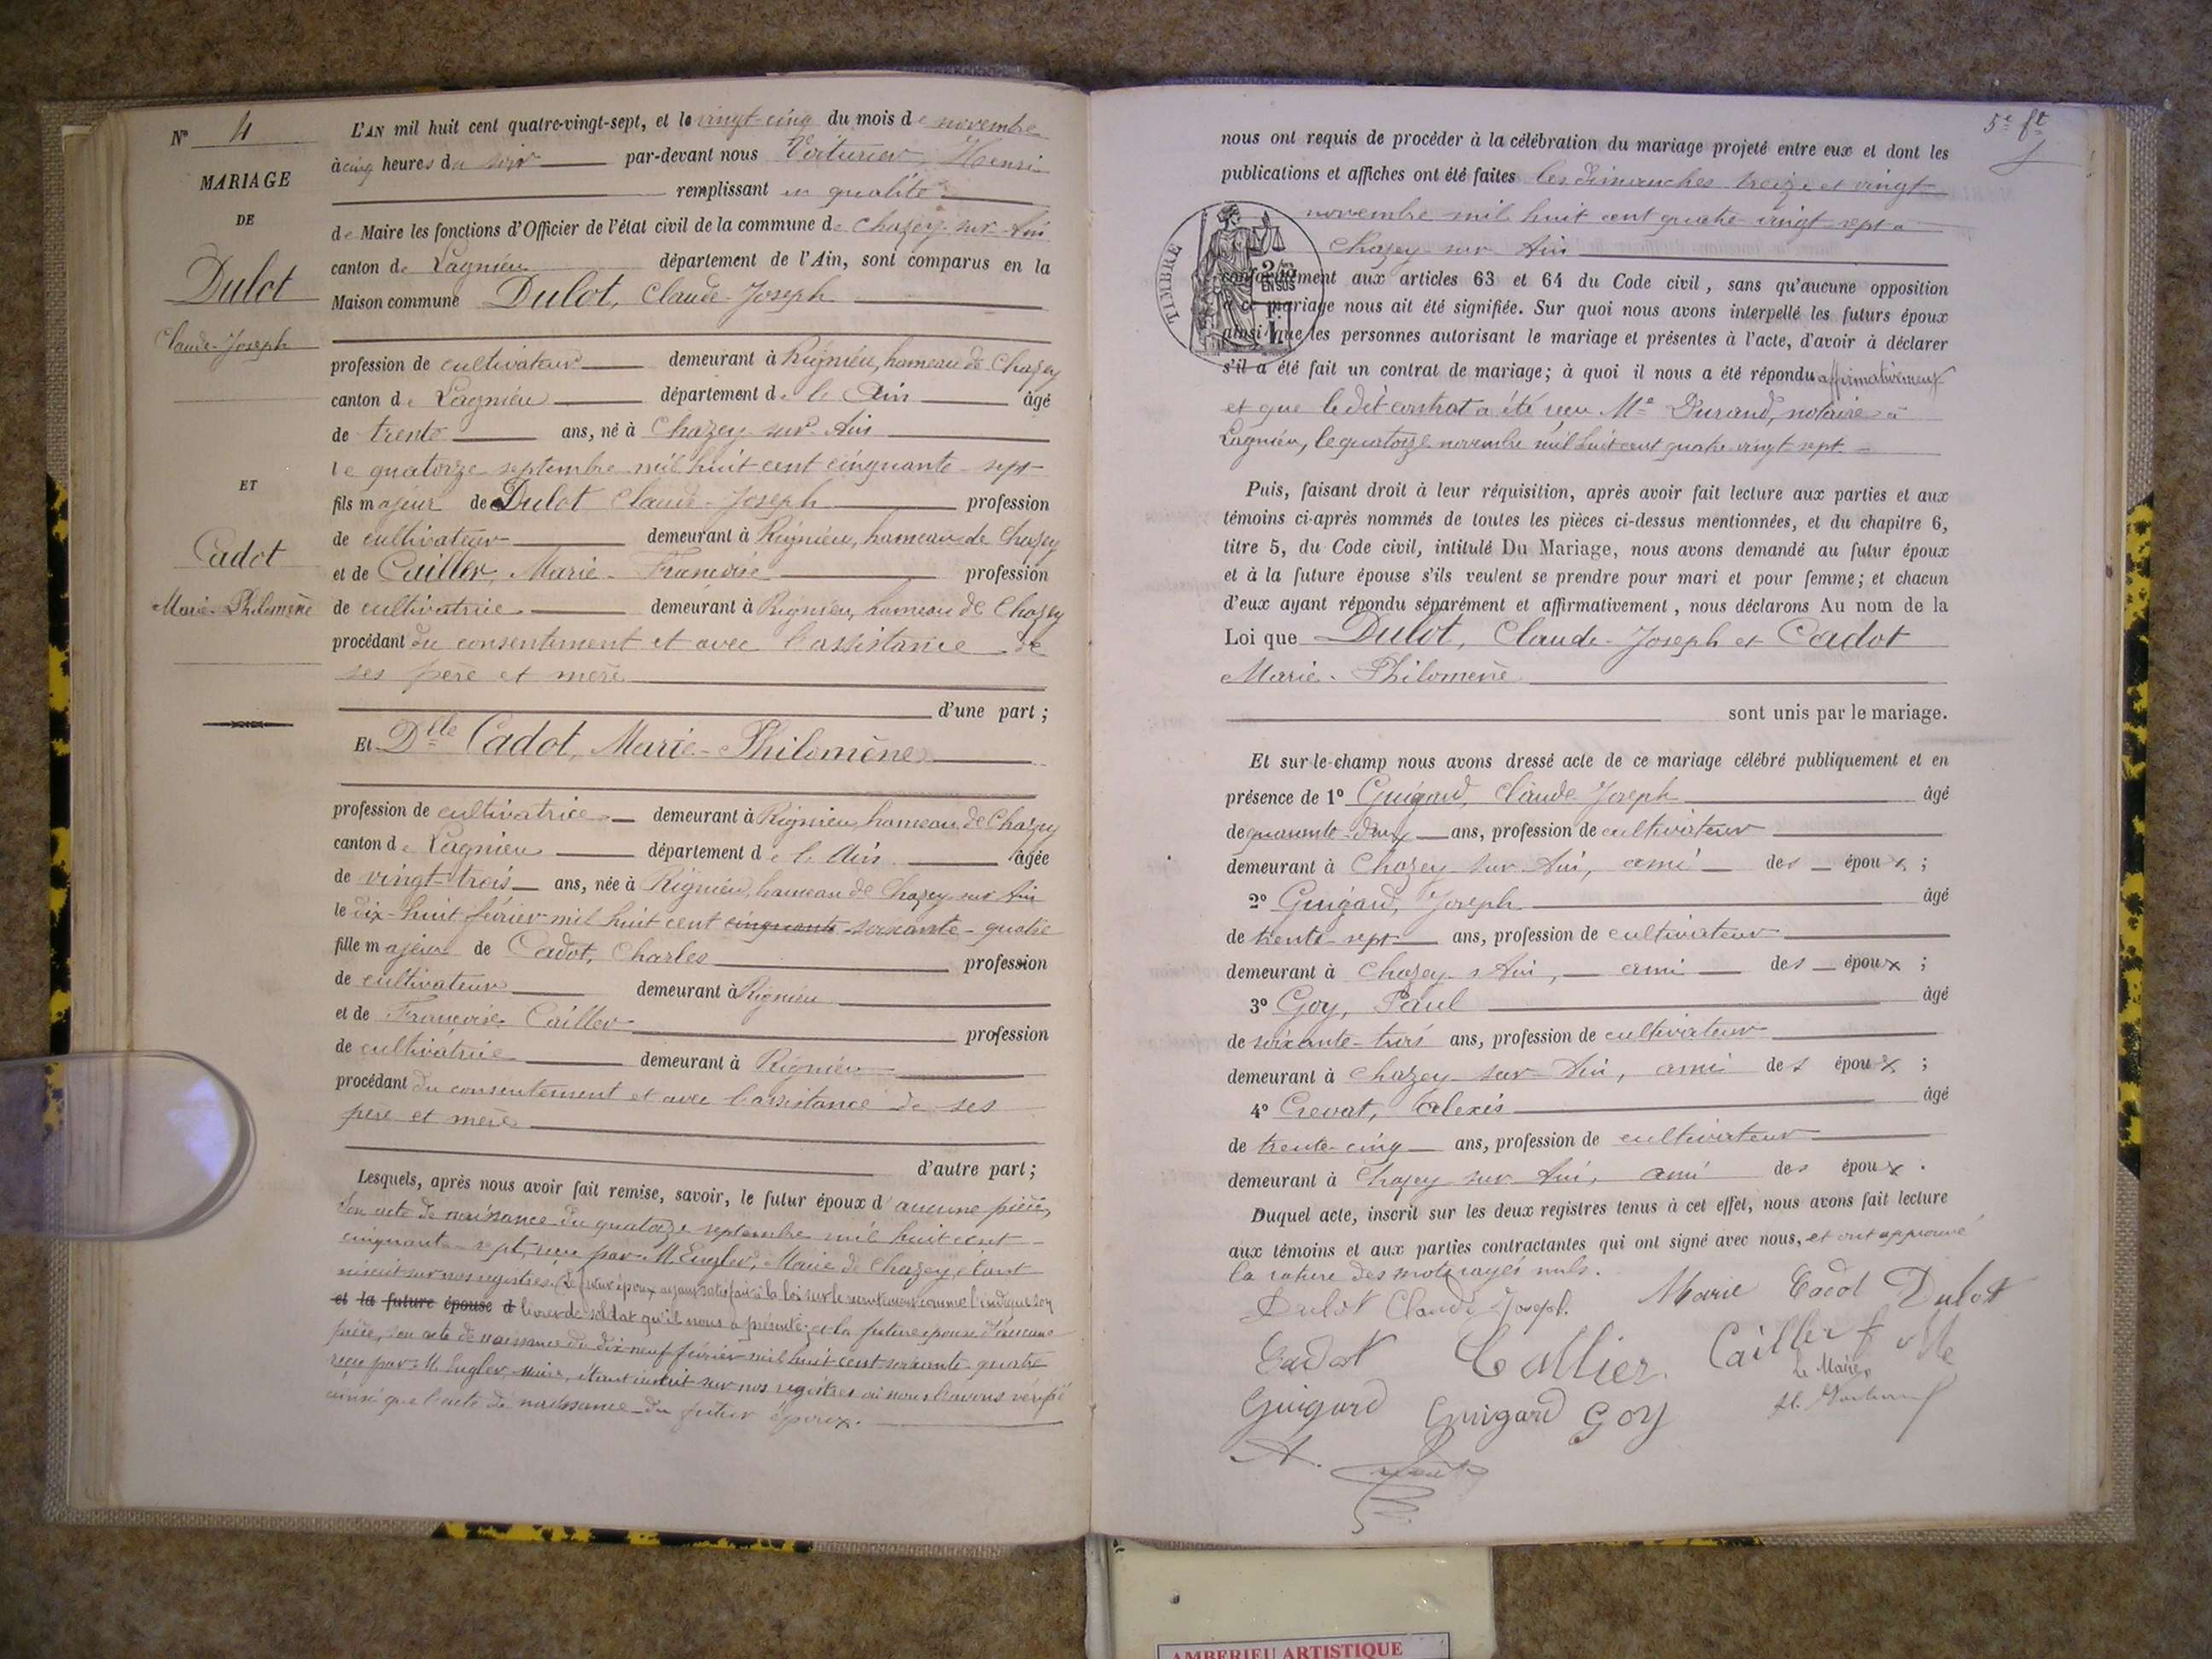 N° 4
MARIAGE
DE
Dulot
Claude-Joseph
ET
Cadot
Marie-Philomène
L'AN mil huit cent quatre-vingt-sept, et le vingt-cinq du mois de novembre
à cinq heures du soir par-devant nous Voiturier, Henri
remplissant en qualité
de Maire les fonctions d'Officier de l'état civil de la commune de Chazey-sur-Ain
canton de Lagnieu département de l'Ain, sont comparus en la
Maison commune Dulot, Claude-Joseph
profession de cultivateur demeurant à Rignieu, hameau de Chazey
canton de Lagnieu département de l'Ain âgé
de trente ans, né à Chazey-sur-Ain
le quatorze septembre mil huit cent cinquante-sept
fils majeur de Dulot Claude-Joseph profession
de cultivateur demeurant à Rignieu, hameau de Chazey
et de Cailler, Marie-Francoise profession
de cultivatrice demeurant à Rignieu, hameau de Chazey
procédant du consentement et avec l'assistance de
ses père et mère
d'une part ;
Et Dlle Cadot, Marie-Philomène
profession de cultivatrice demeurant à Rignieu, hameau de Chazey
canton de Lagnieu département de l'Ain âgée
de vingt-trois ans, née à Rignieu, hameau de Chazey sur Ain
le dix-huit février mil huit cent cinquante soixante-quatre
fille majeure de Cadot, Charles profession
de cultivateur demeurant à Rignieu
et de Francoise Cailler profession
de cultivatrice demeurant à Rignieu
procédant du consentement et avec l'assistance de ses
père et mère
d'autre part ;
Lesquels, après nous avoir fait remise, savoir, le futur époux d'aucune pièce,
Son acte de naissance du quatorze septembre mil huit cent
cinquante-sept, reçu par M. Engler, Maire de Chazey, étant
inscrit sur nos registres. Le futur époux ayant satisfait à la loi sur le recrutement comme l'indique son
et la future épouse d livret de soldat qu'il nous a présenté; et la future épouse d'aucune
pièce, son acte de naissance du dix-neuf février mil huit cent soixante-quatre
reçu par M. Engler, maire, étant inscrit sur nos registres où nous l'avons vérifié
ainsi que l'acte de naissance du futur époux.
5e ft
nous ont requis de procéder à la célébration du mariage projeté entre eux et dont les
publications et affiches ont été faites les dimanches treize et vingt
novembre mil huit cent quatre-vingt-sept à
Chazey-sur-Ain
TIMBRE
EN SUS
conformément aux articles 63 et 64 du Code civil, sans qu'aucune opposition
à ce mariage nous ait été signifiée. Sur quoi nous avons interpellé les futurs époux
ainsi que les personnes autorisant le mariage et présentes à l'acte, d'avoir à déclarer
s'il a été fait un contrat de mariage; à quoi il nous a été répondu affirmativement
et que le dit contrat a été reçu Me Durand, notaire à
Lagnieu, le quatorze novembre mil huit cent quatre vingt sept.
Puis, faisant droit à leur réquisition, après avoir fait lecture aux parties et aux
témoins ci-après nommés de toutes les pièces ci-dessus mentionnées, et du chapitre 6,
titre 5, du Code civil, intitulé Du Mariage, nous avons demandé au futur époux
et à la future épouse s'ils veulent se prendre pour mari et pour femme; et chacun
d'eux ayant répondu séparément et affirmativement, nous déclarons Au nom de la
Loi que Dulot, Claude-Joseph et Cadot
Marie-Philomène
sont unis par le mariage.
Et sur-le-champ nous avons dressé acte de ce mariage célébré publiquement et en
présence de 1° Guigard, Claude Joseph âgé
de quarante-deux ans, profession de cultivateur
demeurant à Chazey sur Ain, ami des époux ;
2° Guigard, Joseph âgé
de trente-sept ans, profession de cultivateur
demeurant à Chazey s Ain, ami des époux ;
3° Goy, Paul âgé
de soixante-trois ans, profession de cultivateur
demeurant à Chazey-sur-Ain, ami des époux ;
4° Crevat, Alexis âgé
de trente-cinq ans, profession de cultivateur
demeurant à Chazey-sur-Ain, ami des époux.
Duquel acte, inscrit sur les deux registres tenus à cet effet, nous avons fait lecture
aux témoins et aux parties contractantes qui ont signé avec nous, et ont approuvé
la rature des mots rayés nuls.
Dulot Claude Joseph. Marie Cadot Dulot
Cadot Callier Cailler f
Le Maire,
Guigard Guigard GOY
A.
AMBERIEU ARTISTIQUE